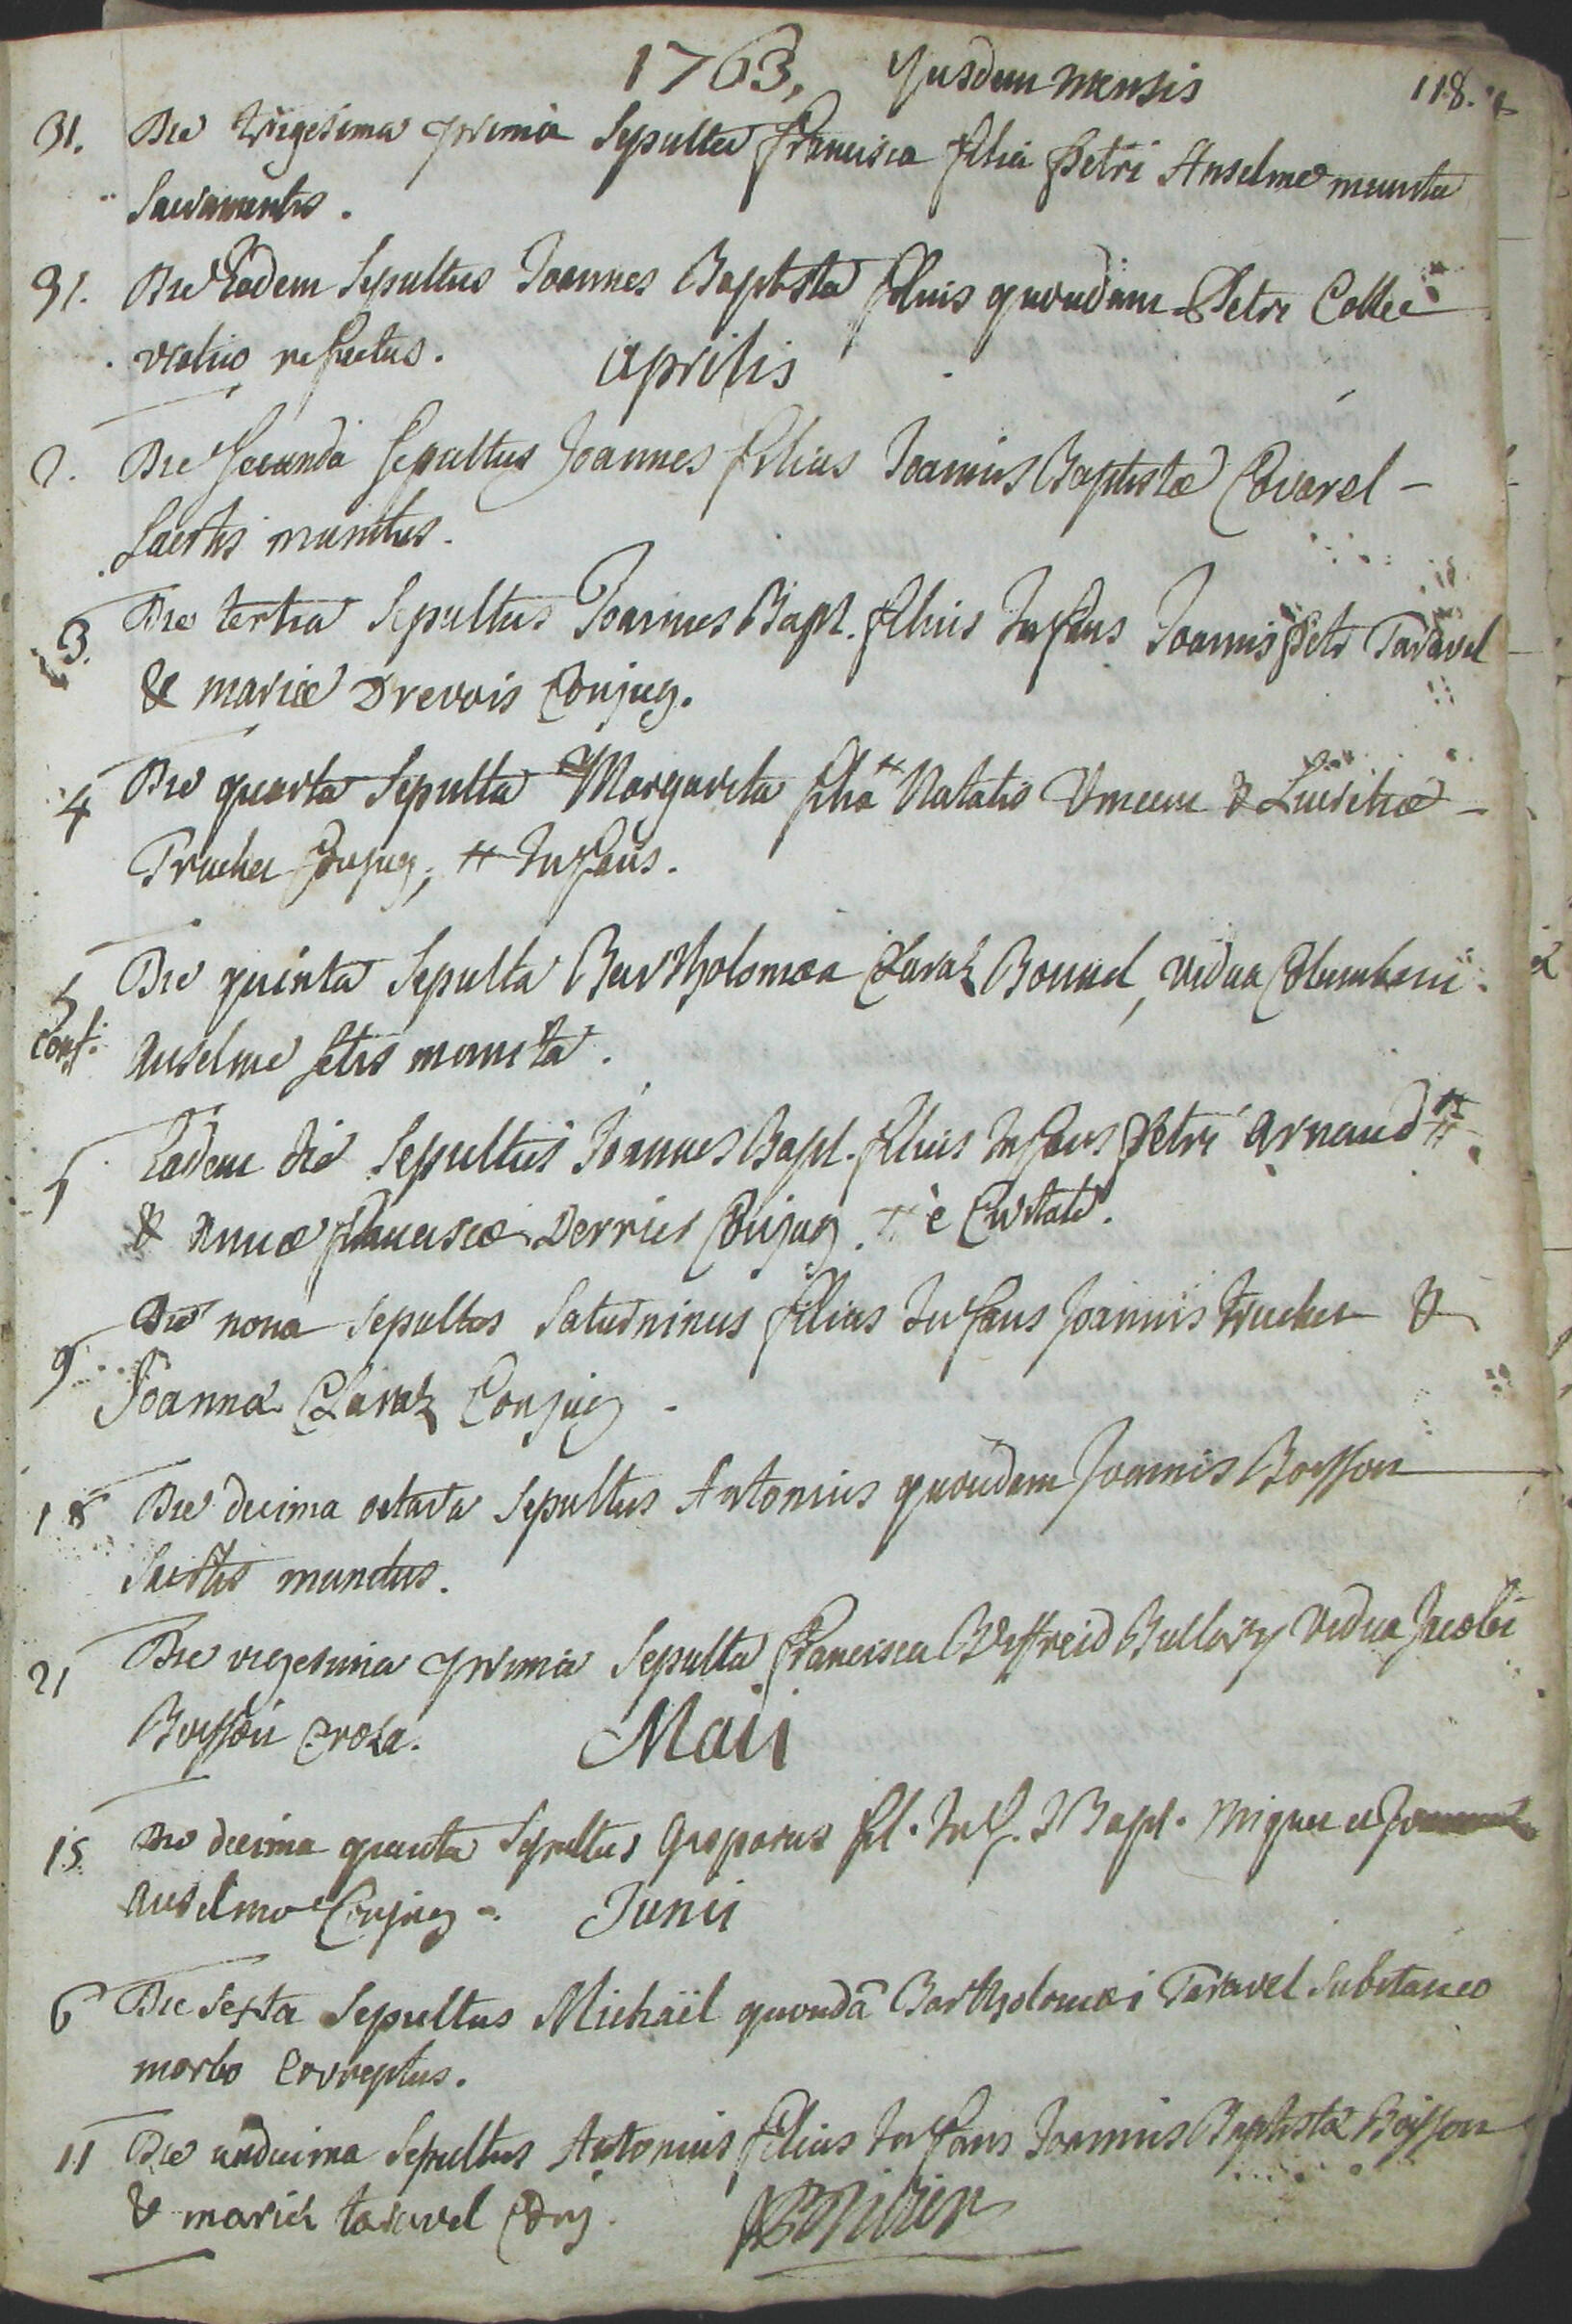 1763, Yusdem mensis 118.
31. Die trigesima prima Sepulta Francisca filia Petri Anselme munita
Sacramentis.
31. Die Eadem Sepultus Joannes Baptista filius quondam Petri Collec
viatico refectus. Aprilis
2. Die Secunda Sepultus Joannes filius Joannis Baptistæ Covarel -
Sactis munitus.
3. Die tertia Sepultus Joannes Bapt. filius Infans Joannis Petri Taravel
& mariæ Drevois Conjug.
4 Die quarta Sepulta Margarita filia # Natalis Vincen & Luciæ -
Trucher Conjug; # Infans.
5 Die quinta Sepulta Bartholomæa Claraz Bonnel, vidua Columbani
conf. Anselme sctis munita.
5 Eadem die Sepultus Joannes Bapt. filius Infans Petri Arnaud #
& Annæ Franciscæ Derrier Conjug. # è Civitate.
9 Die nona Sepultus Saturninus filius Infans Joannis trucher &
Joannæ Claraz Conjug.
18 Die decima octava Sepultus Antonius quondam Joannis Boisson
Sactis munitus.
21 Die vigesima prima Sepulta Francisca Beffreid Bullosy vidua Jacobi
Boisson Croza. Maii
15 Die decima quinta Sepultus Gasparus fil. Inf. J Bapt. Miguer et
Anselme Conjug. Junii
6 Die Sexta Sepultus Michaël quondã Bartholomæi Taravel Subitaneo
morbo Correptus.
11 Die undecima Sepultus Antonius filius Infans Joannis Baptistæ Boisson
& mariæ taravel Conj.